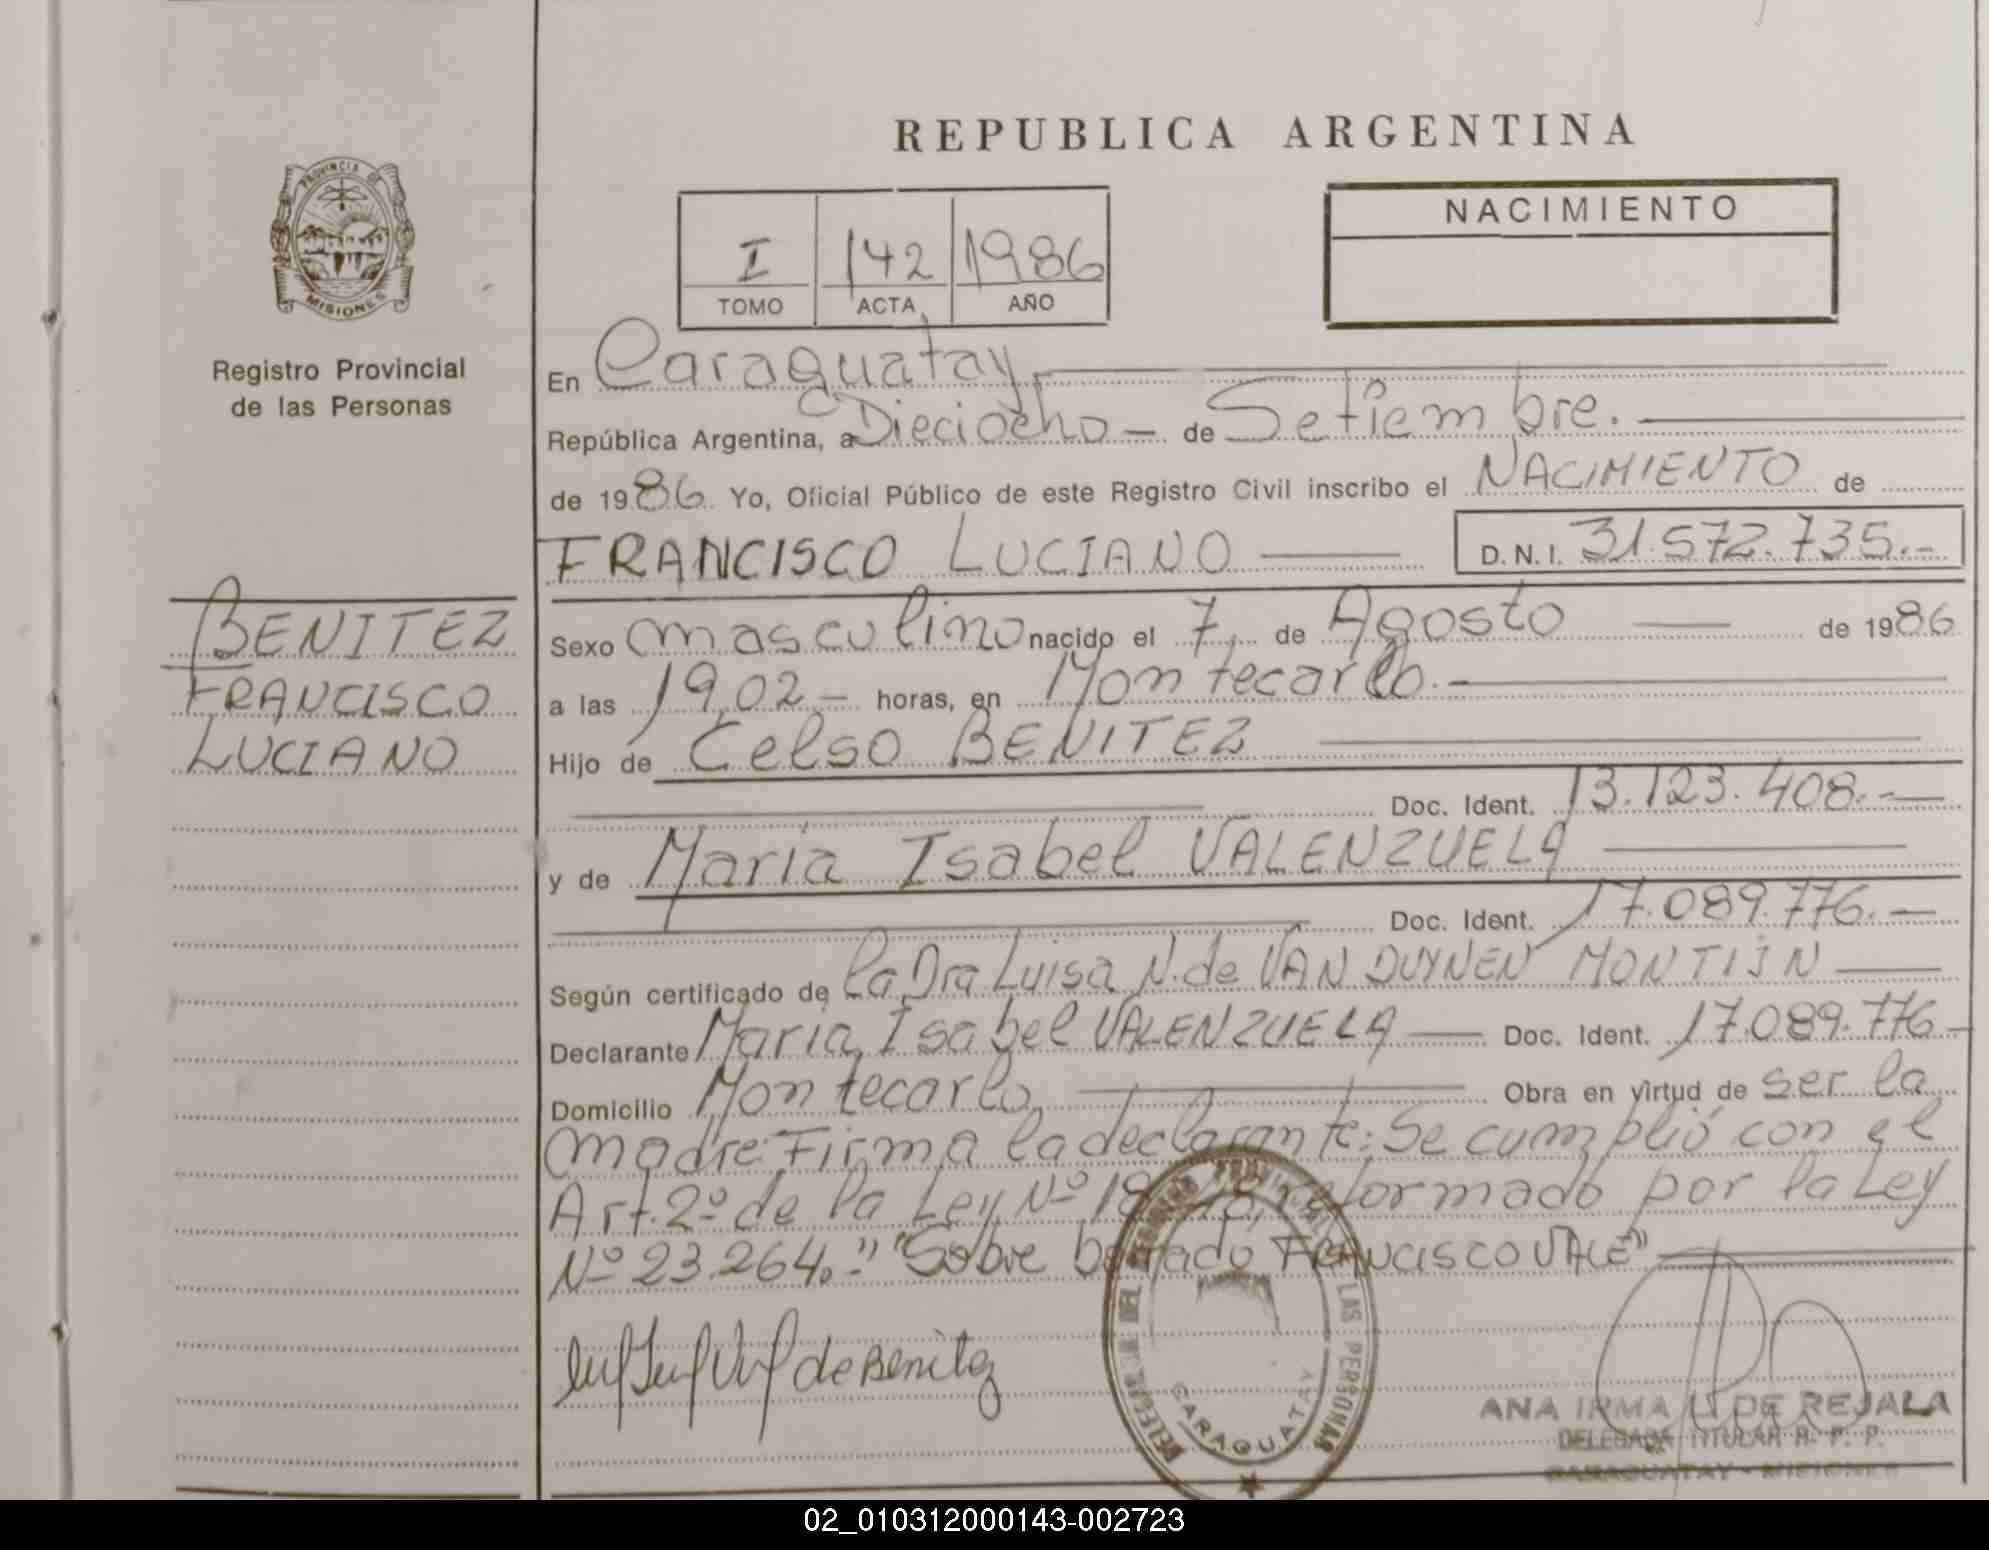 REPUBLICA ARGENTINA
PROVINCIA DE
MISIONES
Registro Provincial
de las Personas
I 142 1986
TOMO ACTA AÑO
NACIMIENTO
En Caraguatay
República Argentina, a Dieciocho - de Setiembre.
de 1986. Yo, Oficial Público de este Registro Civil inscribo el NACIMIENTO de
FRANCISCO LUCIANO D.N.I. 31.572.735.-
BENITEZ
FRANCISCO
LUCIANO
Sexo masculino nacido el 7 de Agosto de 1986
a las 19,02 - horas, en Montecarlo.-
Hijo de Celso BENITEZ
Doc. Ident. 13.123.408.-
y de María Isabel VALENZUELA
Doc. Ident. 17.089.776.-
Según certificado de la Dra Luisa N. de VAN DUYNEN MONTIJN
Declarante María Isabel VALENZUELA Doc. Ident. 17.089.776-
Domicilio Montecarlo Obra en virtud de ser la
madre: Firma la declarante: Se cumplió con el
Art. 2º de la Ley Nº reformado por la Ley
Nº 23.264." "Sobre borrado FRANCISCO VALE"
de Benitez
LAS PERSONAS
CARAGUATAY
ANA IRMA DE REJALA
DELEGADA TITULAR R. P. P.
CARAGUATAY - MISIONES
02_010312000143-002723